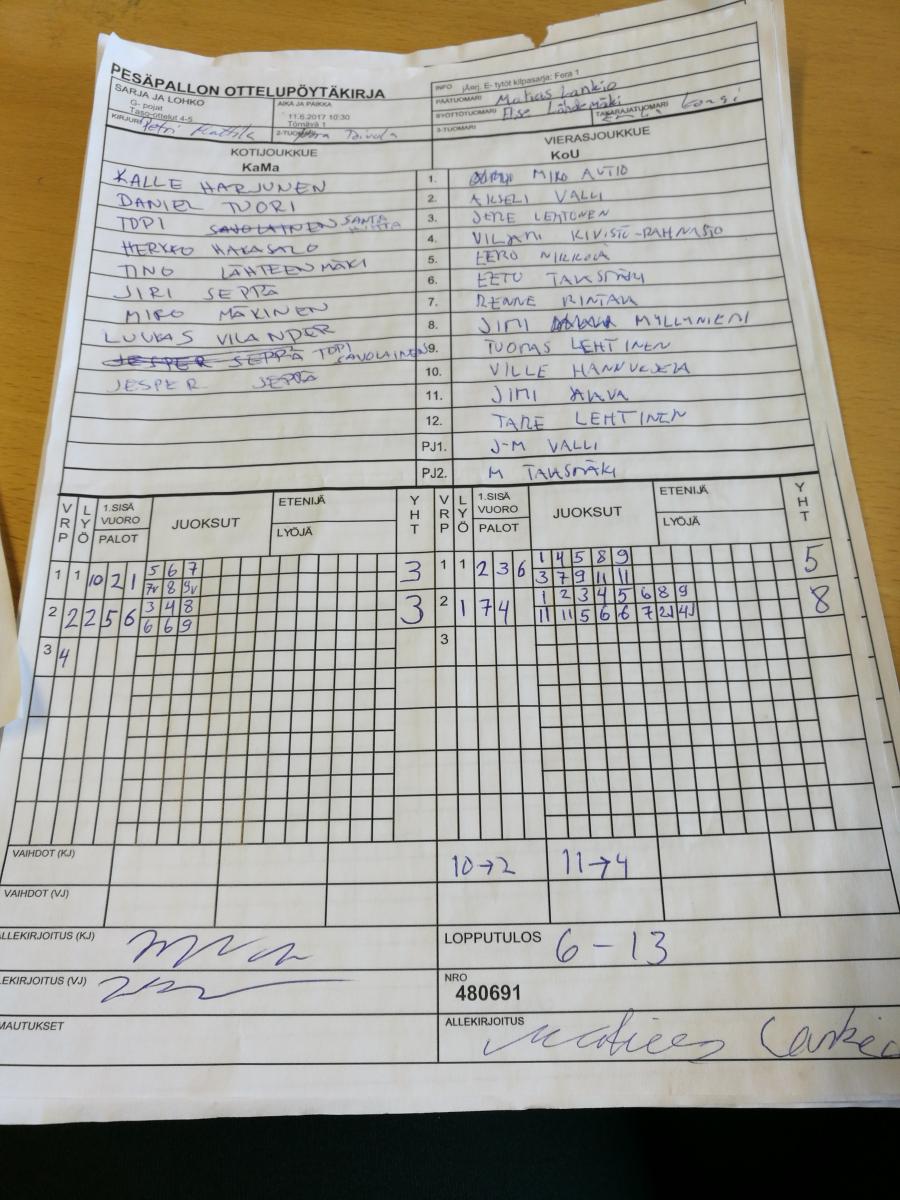 PESÄPALLON OTTELUPÖYTÄKIRJA
SARJA JA LOHKO
G- pojat
Taso-ottelut 4-5
AIKA JA PAIKKA
11.6.2017 10:30
Törnävä 1
INFO Marj. E- tytöt kilpasarja: Fera 1
PÄÄTUOMARI Matias Lankio
SYÖTTÖTUOMARI
TAKARAJATUOMARI
KIRJURI Petri
2-TUOMARI
3-TUOMARI
KOTIJOUKKUE
KaMa
VIERASJOUKKUE
KoU
KALLE HARJUNEN 1. MIRO AUTIO
DANIEL TUORI 2. AKSELI VALLI
TOPI SAVOLAINEN SANTA 3. JERE LEHTONEN
HERKKO HAKASALO 4. VILJAMI KIVISTÖ-RAHNASTO
TINO LÄHTEENMÄKI 5. EERO NIKKOLA
JIRI SEPPÄ 6. EETU TAKSMÄKI
MIRO MÄKINEN 7. RENNE RINTALA
LUUKAS VILANDER 8. JIMI MYLLYNIEMI
JESPER SEPPÄ TOPI SAVOLAINEN 9. TUOMAS LEHTINEN
JESPER SEPPÄ 10. VILLE HANNUKSELA
11. JIMI
12. TARE LEHTINEN
PJ1. J-M VALLI
PJ2. M TAKSMÄKI
VRP LYÖ 1.SISÄ VUORO PALOT JUOKSUT ETENIJÄ LYÖJÄ YHT VRP LYÖ 1.SISÄ VUORO PALOT JUOKSUT ETENIJÄ LYÖJÄ YHT
1 1 10 2 1 5 6 7 3 1 1 2 3 6 1 4 5 8 9 5
7v 8 9v 3 7 9 11 11
2 2 2 5 6 3 4 8 3 2 1 7 4 1 2 3 4 5 6 8 9 8
6 6 9 11 11 5 6 6 7 2J 4J
3 4 3
VAIHDOT (KJ) 10→2 11→4
VAIHDOT (VJ)
ALLEKIRJOITUS (KJ)
LOPPUTULOS 6-13
LEKIRJOITUS (VJ)
NRO
480691
MAUTUKSET
ALLEKIRJOITUS Matias Lankio